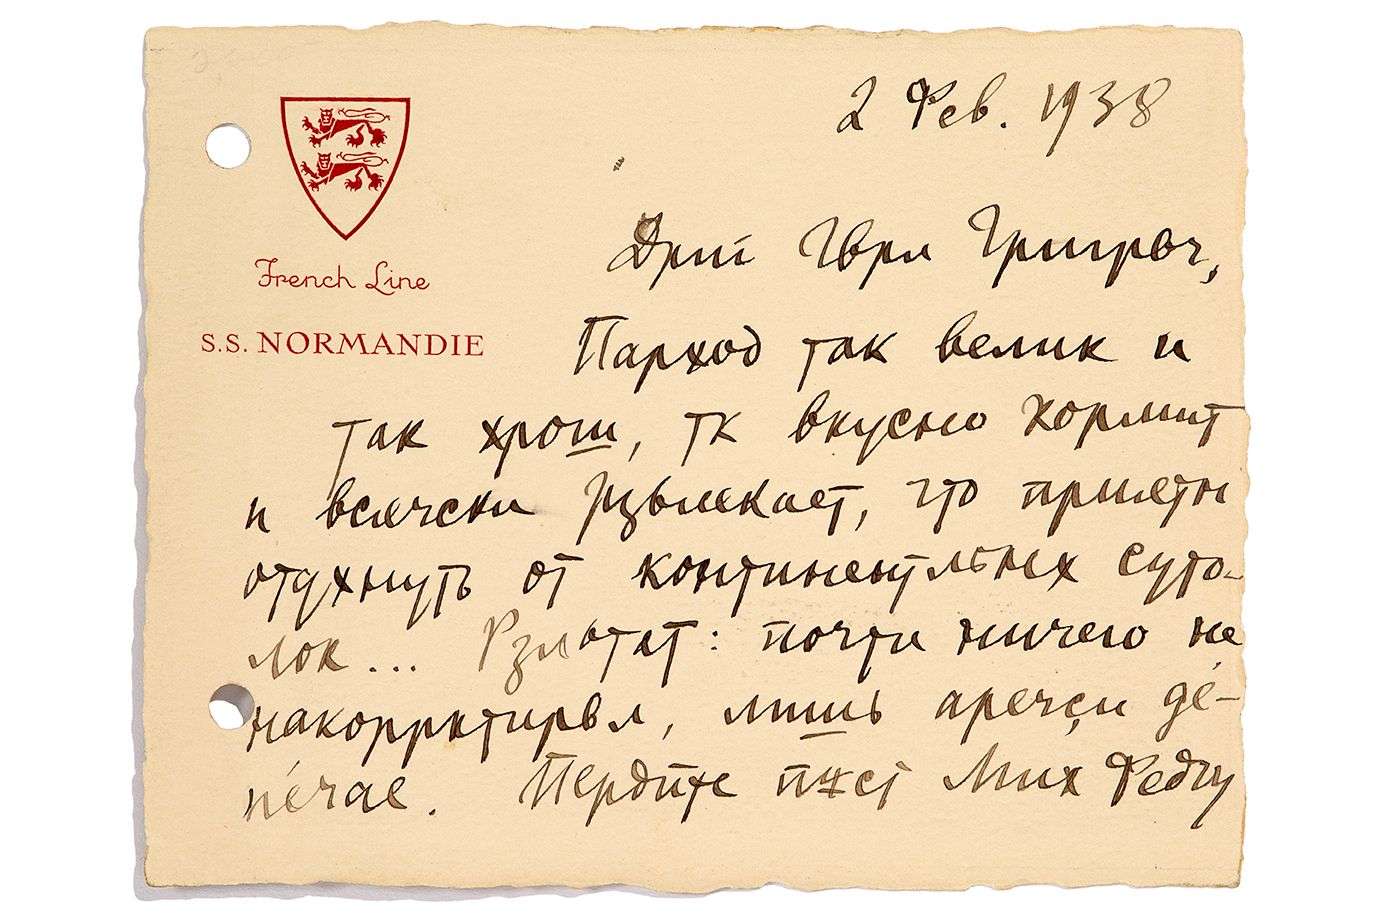 2 Фев. 1938
French Line
S.S. NORMANDIE
Дргй Гврл Григрвч,
Парход так велик и
так хрош, тк вкусно кормит
и всячски рзвлекает, что приятн
отдхнуть от континентльнх суто-
лок... Рзльтат: почти ничего не
накорректирвл, лишь
Пердйте пжст Мих Федчу